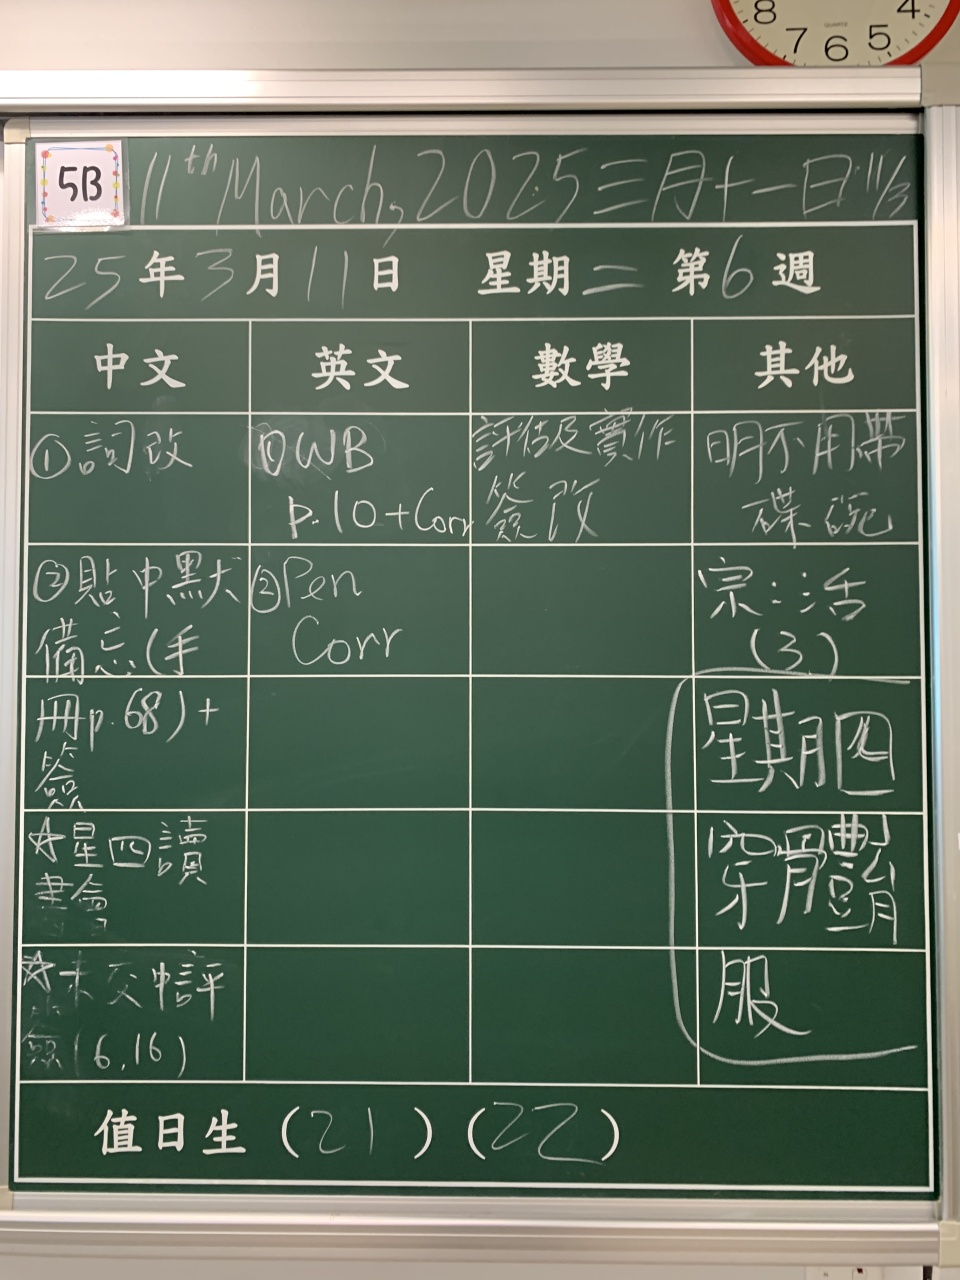 8 7 6 5 4
QUARTZ
5B
11th March, 2025 三月十一日 11/3
25年3月11日 星期二 第6週
中文 英文 數學 其他
①詞改
①WB
p.10+Corr
評估及實作
簽改
明不用帶
碟碗
②貼中默
備忘(手
冊p.68)+
簽
②Pen
Corr
宗:活
(3)
星期四
穿體育
服
☆星四讀
書會
☆未交中評
簽(6,16)
值日生 (21)(22)